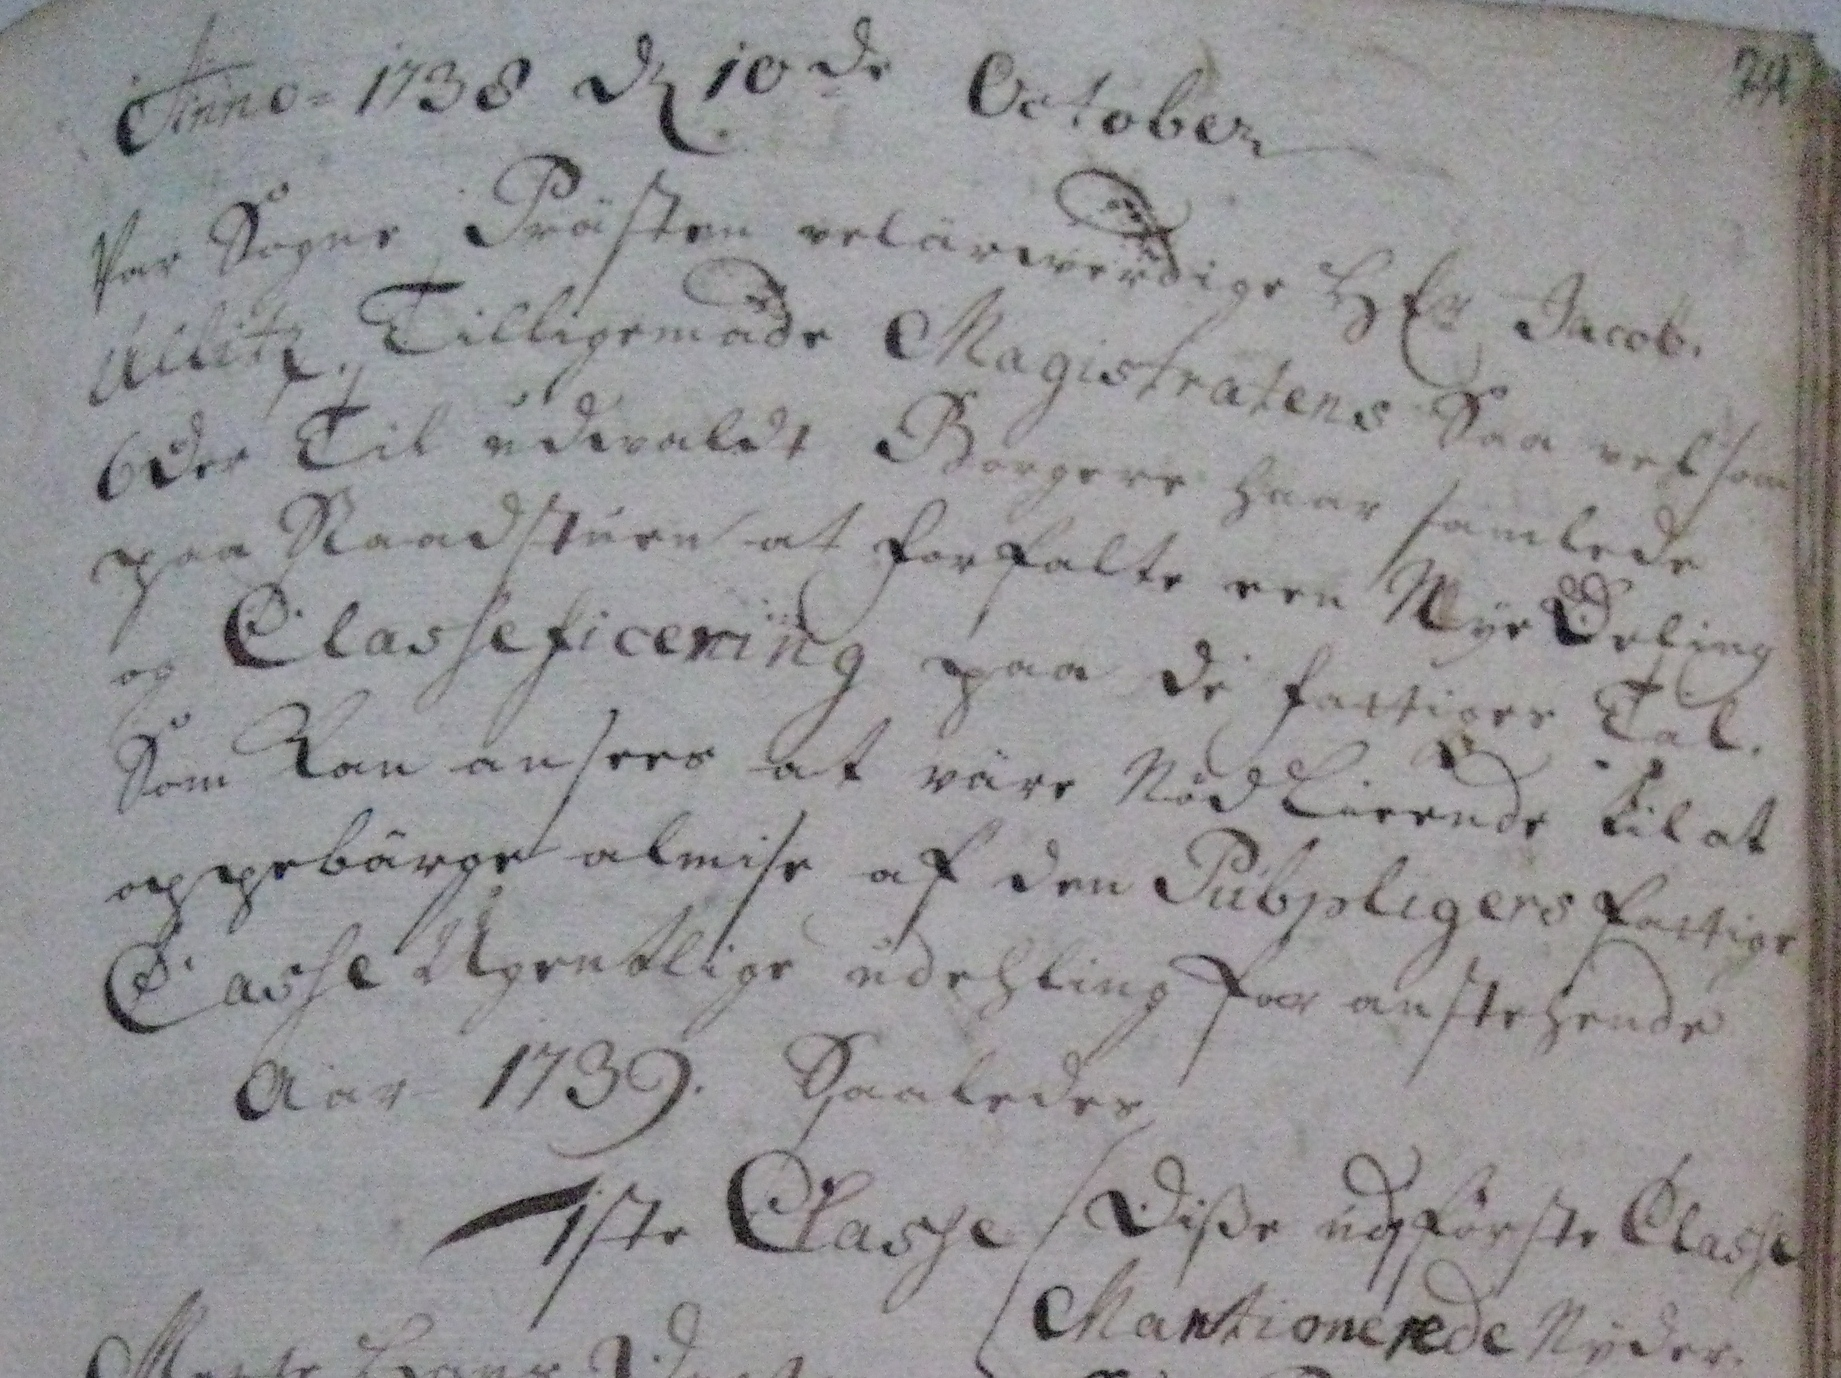 Anno 1738 dn 10de October
Var Sogne Prästen velärwerdige Hr Jacob.
Ulitz, Tilligemäde Magistratens Saa vel som
6 der Til udvaldt Borgere haar samlede
paa Raadstuen at forfatte een Nye Deling
og Classeficering paa de fattiges Tal.
Som Kan ansees at väre Nødlieende til at
oppebärge almise af den Pubpligers fattige
Casse Ugentlige udehling for anstehende
Aar 1739. Saaledes
1ste Classe Disse udj förste Classe
Mantionerede Nyder.